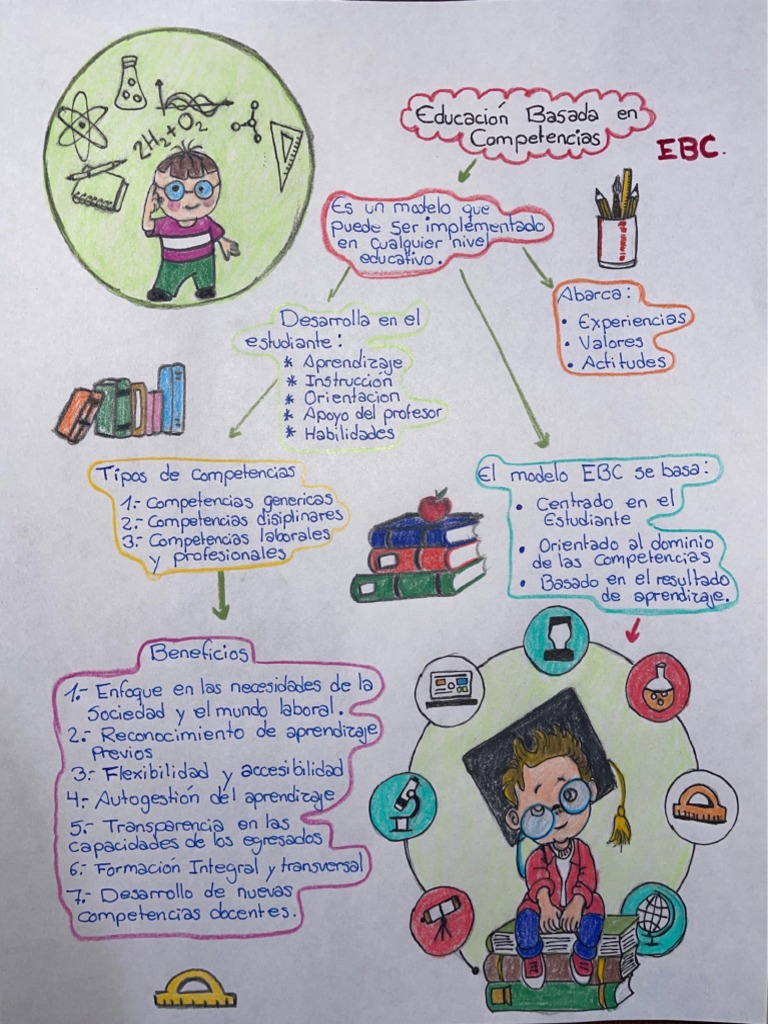 2H₂+O₂
Educación Basada en
Competencias
EBC.
Es un modelo que
puede ser implementado
en cualquier nivel
educativo.
Abarca:
• Experiencias
• Valores
• Actitudes
Desarrolla en el
estudiante:
* Aprendizaje
* Instrucción
* Orientacion
* Apoyo del profesor
* Habilidades
Tipos de competencias
1.- Competencias genericas
2.- Competencias disiplinares
3.- Competencias laborales
y profesionales
El modelo EBC se basa:
• Centrado en el
Estudiante
• Orientado al dominio
de las Competencias
• Basado en el resultado
de aprendizaje.
Beneficios
1.- Enfoque en las necesidades de la
Sociedad y el mundo laboral.
2.- Reconocimiento de aprendizaje
Previos
3.- Flexibilidad y accesibilidad
4.- Autogestión del aprendizaje
5.- Transparencia en las
capacidades de los egresados
6.- Formación Integral y transversal
7.- Desarrollo de nuevas
competencias docentes.